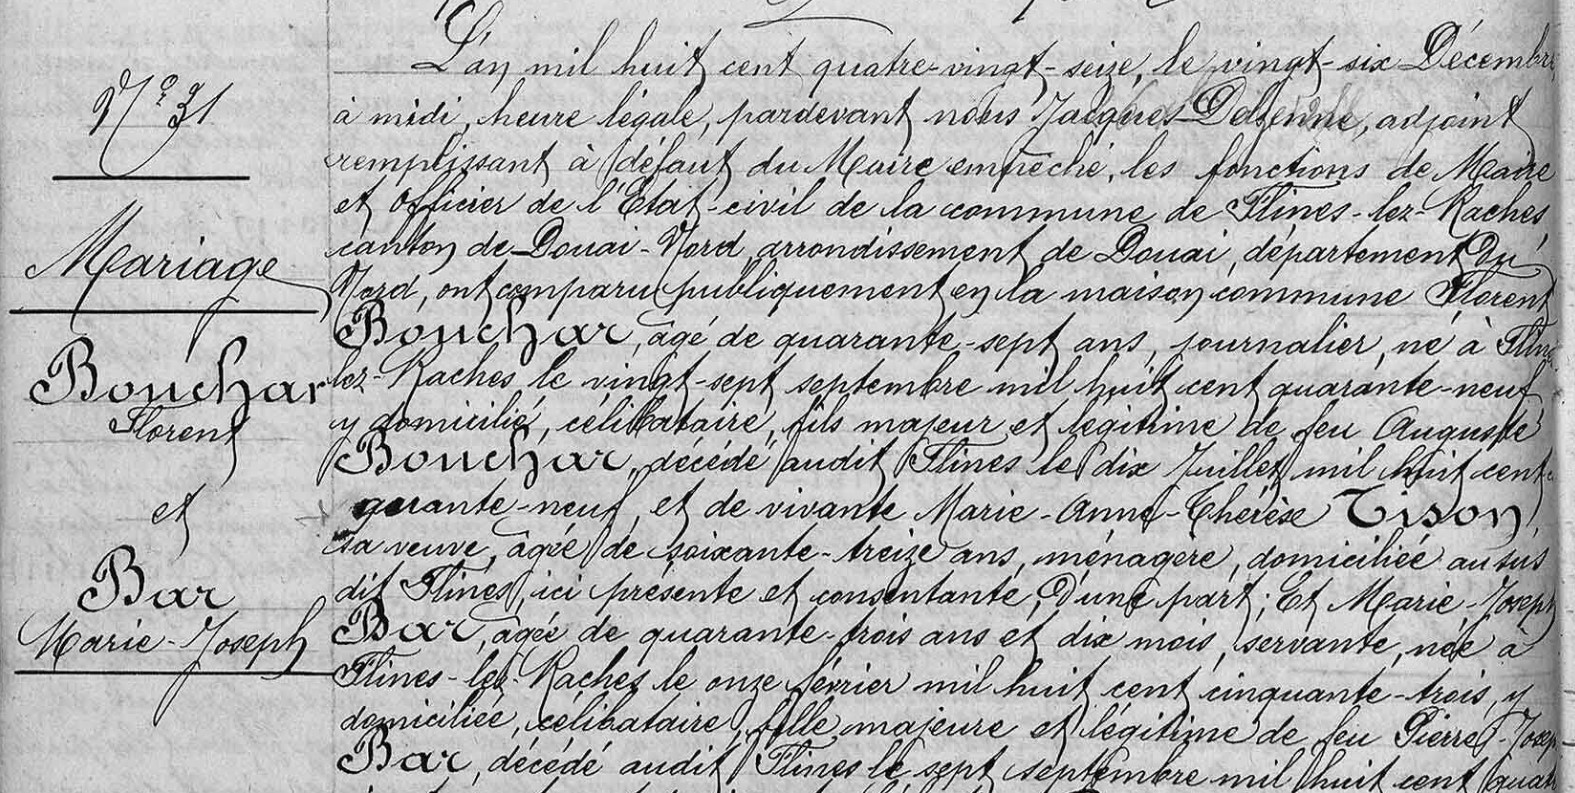 N° 31
Mariage
Bouchar
Florent
et
Bar
Marie-Joseph
L'an mil huit cent quatre-vingt-seize, le vingt-six Décembre
à midi, heure légale, pardevant nous Jacques Delsenne, adjoint
remplissant à défaut du Maire empêché, les fonctions de Maire
et Officier de l'Etat-civil de la commune de Flines-lez-Raches,
canton de Douai-Nord, arrondissement de Douai, département du
Nord, ont comparu publiquement en la maison commune Florent
Bouchar, âgé de quarante-sept ans, journalier, né à Flines
lez-Raches le vingt-sept septembre mil huit cent quarante-neuf
y domicilié, célibataire, fils majeur et légitime de feu Auguste
Bouchar, décédé audit Flines le dix Juillet mil huit cent
quarante-neuf, et de vivante Marie-Anne-Thérèse Tison,
sa veuve, âgée de soixante-treize ans, ménagère, domiciliée au sus
dit Flines, ici présente et consentante, d'une part; Et Marie-Joseph
Bar, âgée de quarante-trois ans et dix mois, servante, née à
Flines-lez-Raches le onze février mil huit cent cinquante-trois, y
domiciliée, célibataire, fille majeure et légitime de feu Pierre-Joseph
Bar, décédé audit Flines le sept septembre mil huit cent quatr